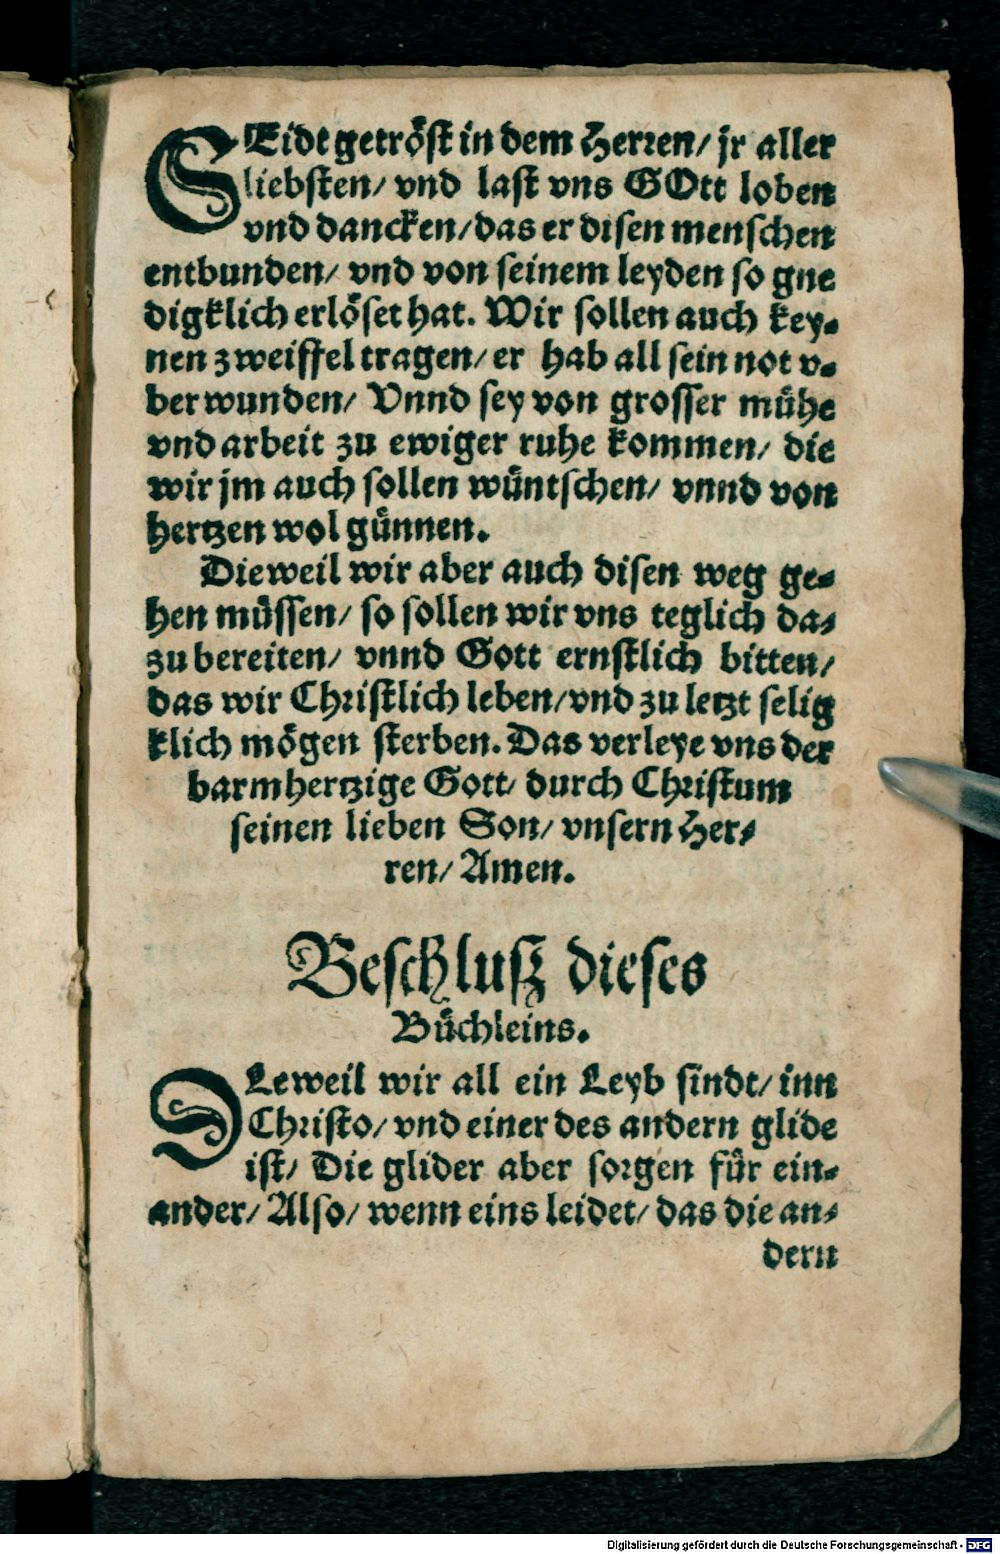 SEidt getröst in dem Herren/ jr aller
liebsten/ vnd last vns GOtt loben
vnd dancken/ das er disen menschen
entbunden/ vnd von seinem leyden so gne
digklich erlöset hat. Wir sollen auch key-
nen zweiffel tragen/ er hab all sein not v-
ber wunden/ Vnnd sey von grosser mühe
vnd arbeit zu ewiger ruhe kommen/ die
wir jm auch sollen wüntschen/ vnnd von
hertzen wol günnen.
Dieweil wir aber auch disen weg ge-
hen müssen/ so sollen wir vns teglich da-
zu bereiten/ vnnd Gott ernstlich bitten/
das wir Christlich leben/ vnd zu letzt selig
klich mögen sterben. Das verleye vns der
barmhertzige Gott/ durch Christum
seinen lieben Son/ vnsern Her-
ren/ Amen.
Beschlusz dieses
Büchleins.
DIeweil wir all ein Leyb sindt/ inn
Christo/ vnd einer des andern glide
ist/ Die glider aber sorgen für ein-
ander/ Also/ wenn eins leidet/ das die an-
dern
Digitalisierung gefördert durch die Deutsche Forschungsgemeinschaft - DFG